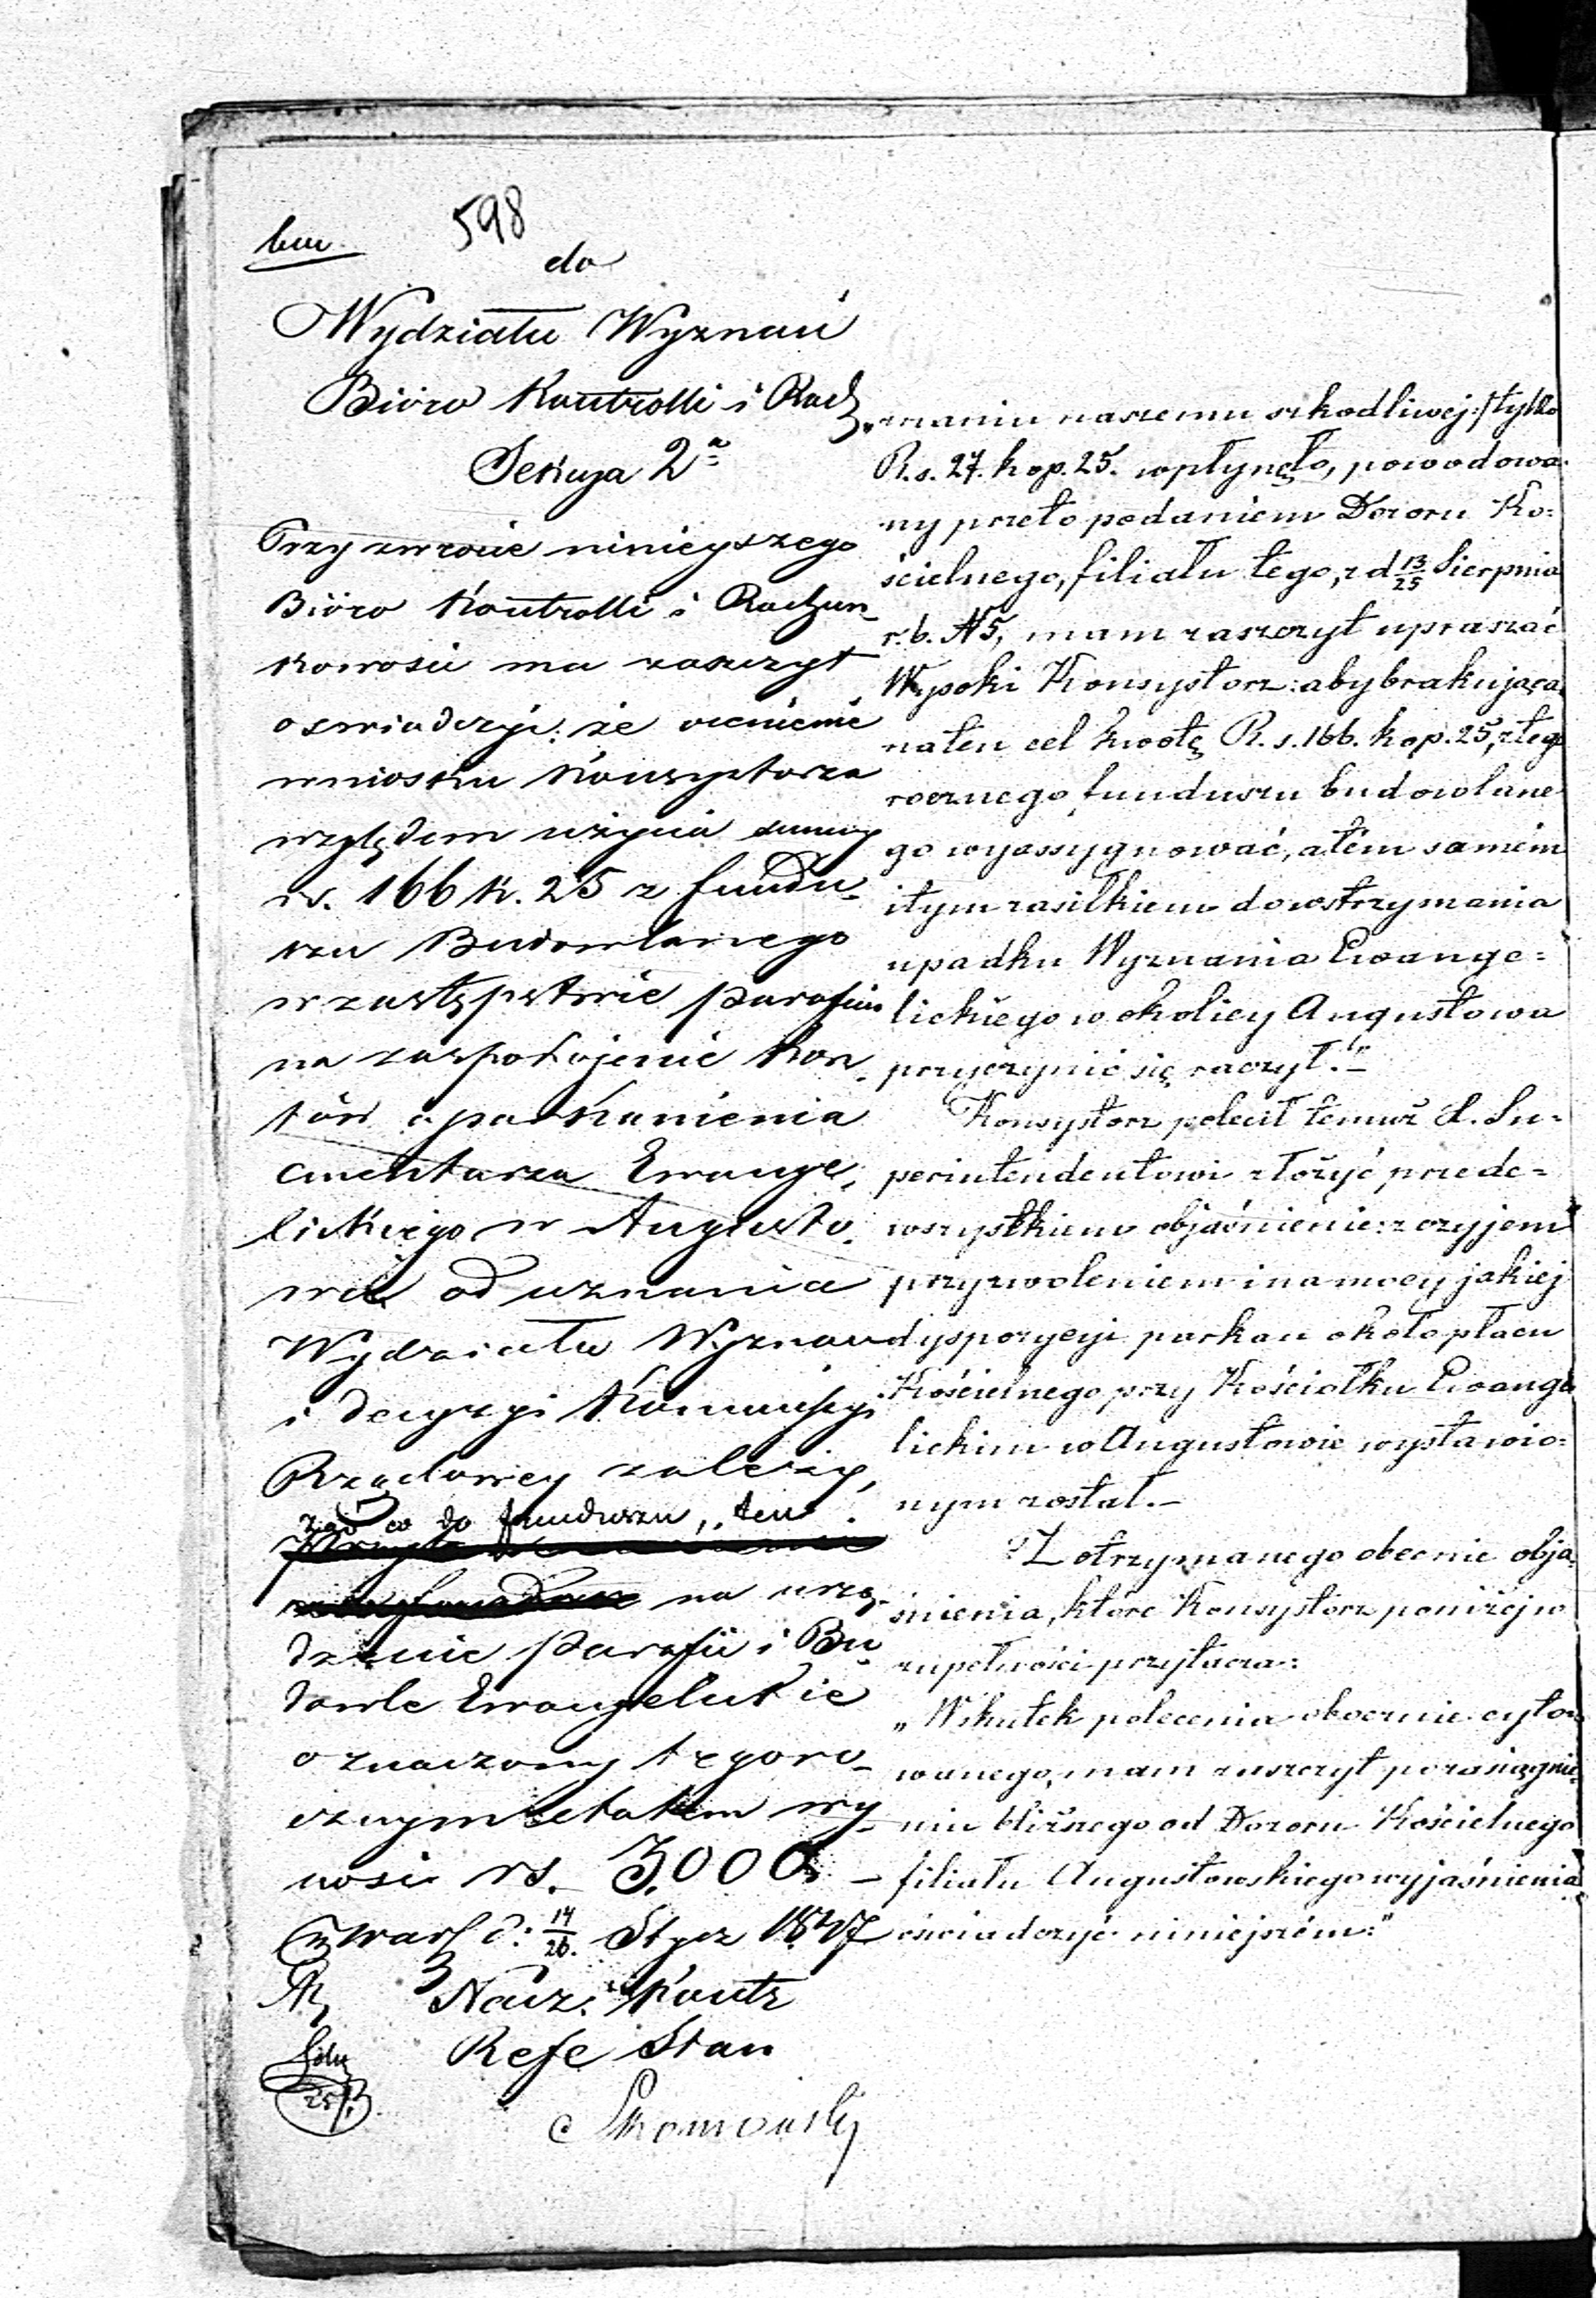 598
do
Wydziału Wyznań
Bióro Kontrolli i Rach
Sekcya 2a
Przy zwrocie niniejszego
Bióro Kontrolli i Rachun-
kowości ma zaszczyt
oświadczyć: że ocenienie
wniosku Konsystorza
względem użycia summy
rs. 166 k. 25 z fundu-
szu Budowlanego
w zastępstwie parafian
na zaspokojenie kosz-
tów oparkanienia
cmentarza Ewange-
lickiego w Augusto-
wie od uznania
Wydziału Wyznań
i decyzyi Kommissyi
Rządowey zależy,
zaś co do funduszu, ten
na urzą-
dzenie parafii i Bu-
dowle Ewangelickie
oznaczony tegoro-
cznym etatem wy-
nosi rs. 3.000 -
w Warsz d: 14/26. Stycz 1847
Nacz: Kontr
Refe Stan
maniu naszemu szkodliwej:/ tylko
R.s. 27. kop. 25. wpłynęło, powodowa-
ny przeto podaniem Dozoru Ko-
ścielnego, filiału tego, z d 13/25 Sierpnia
r. b. N 5, mam zaszczyt upraszać
Wysoki Konsystorz: aby brakującą
na ten cel kwotę R. s. 166. kop. 25, z tego
rocznego funduszu budowlane
go wyassygnować, a tém samém
i tym zasiłkiem do wstrzymania
upadku Wyznania Ewange-
lickiego w okolicy Augustowa
przyczynić się raczył."-
Konsystorz polecił temuż X. Su-
perintendentowi złożyć przede-
wszystkiem objaśnienie: z czyjem
przyzwoleniem i na mocy jakiej
dyspozycyi parkan około placu
Kościelnego przy Kościołku Ewange
lickim w Augustowie wystawio-
nym został.-
Z otrzymanego obecnie obja-
śnienia, które Konsystorz poniżej w
zupełności przytacza:
„Wskutek polecenia obocznie cyto-
wanego, mam zaszczyt po zasiągnie-
niu bliższego od Dozoru Kościelnego
filiału Augustowskiego wyjaśnienia
oświadczyć niniejszém:"